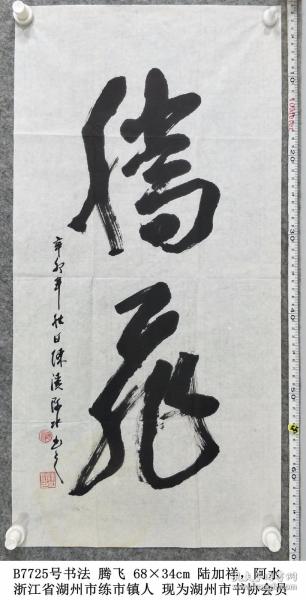 腾飞
辛卯年秋日练溪阿水书
B7725号书法 腾飞 68×34cm 陆加祥，阿水
浙江省湖州市练市镇人 现为湖州市书协会员